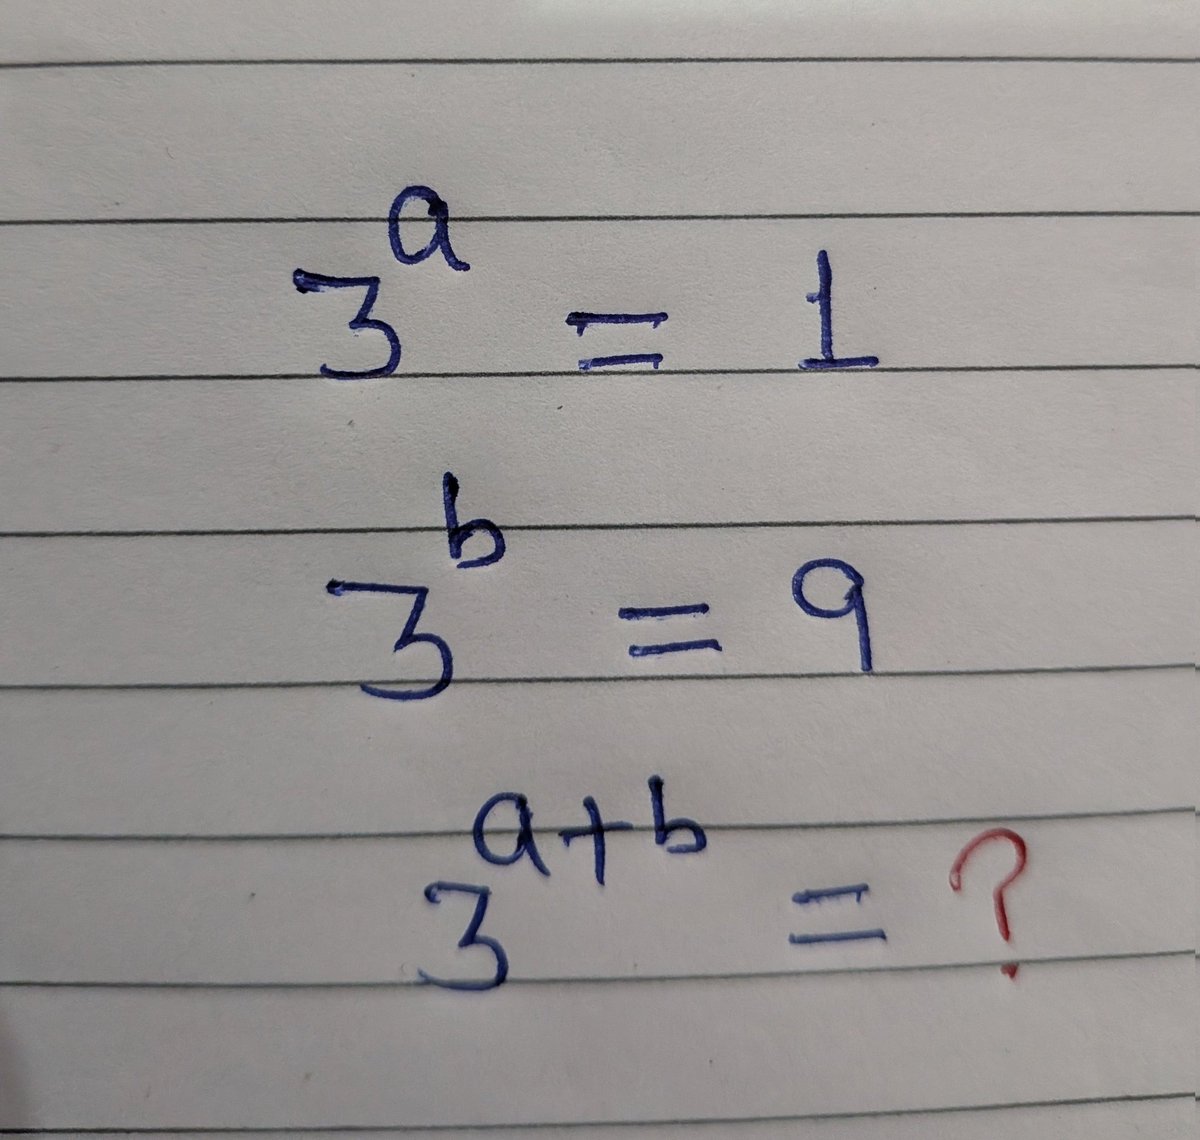 3^a = 1
3^b = 9
3^(a+b) = ?